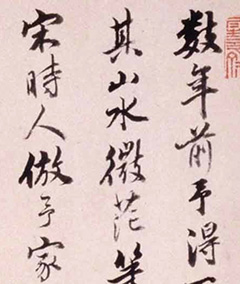 数年前予得
其山水微茫
宋時人倣予家